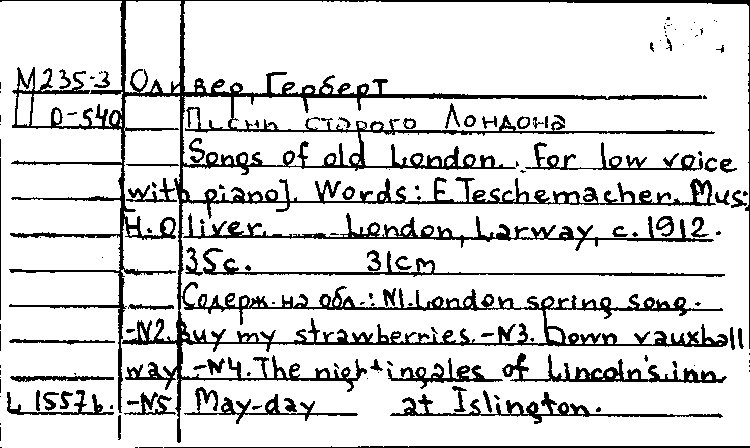 М235-3 Оливер, Герберт
D-540 Песни старого Лондона
Songs of old London. For low voice
[with piano]. Words: E. Teschemacher. Mus:
H. Oliver. London, Larway, c. 1912.
35c. 31cm
Содерж. на обл.: N1. London spring song.
-N2. Buy my strawberries. -N3. Down vauxhall
way -N4. The nightingales of Lincoln's inn
L 1557b. -N5 May-day at Islington.